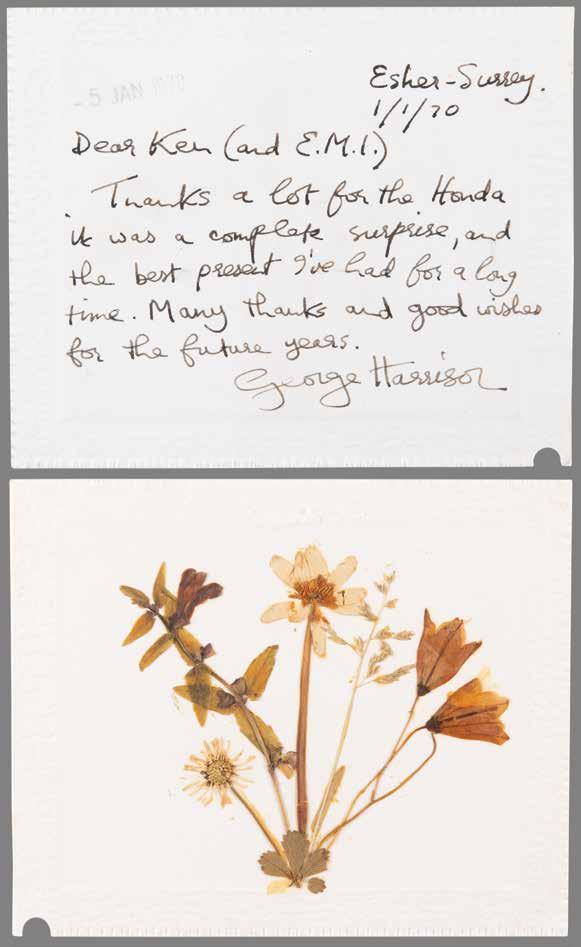 Esher-Surrey.
- 5 JAN 1970
1/1/70
Dear Ken (and E.M.I.)
Thanks a lot for the Honda
it was a complete surprise, and
the best present I've had for a long
time. Many thanks and good wishes
for the future years.
George Harrison